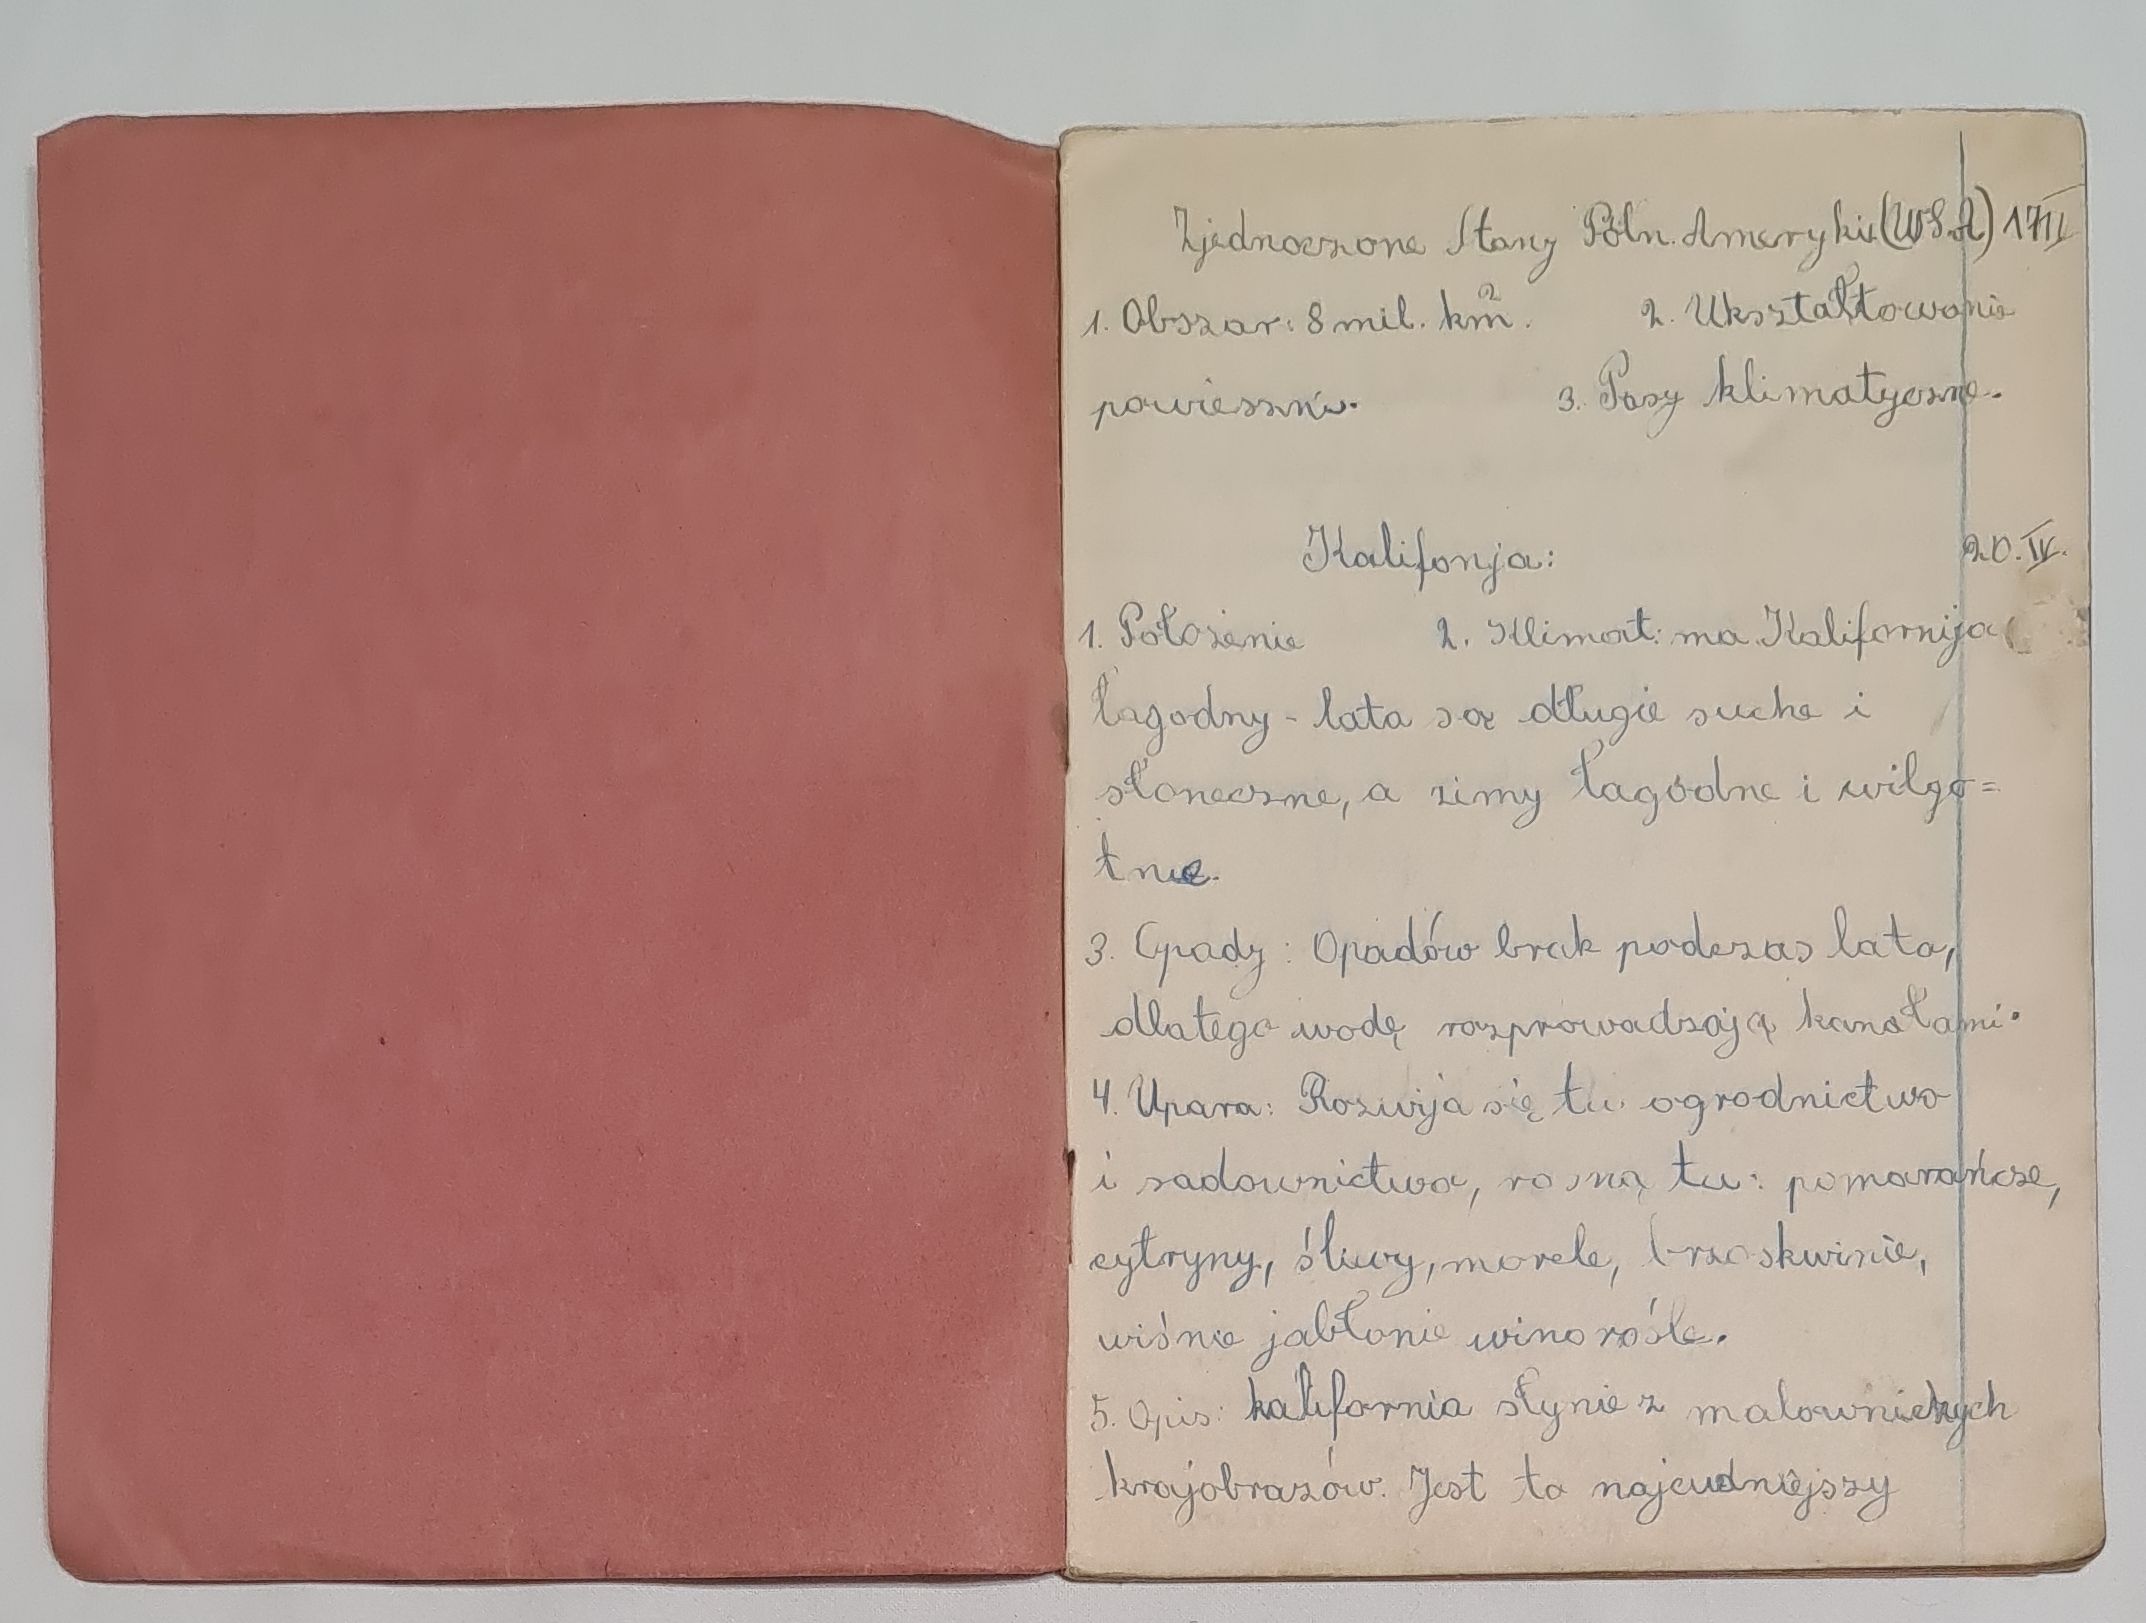 Zjednoczone Stany Półn. Ameryki (USA) 17 II
1. Obszar: 8 mil. km². 2. Ukształtowanie
powieszni. 3. Pasy klimatyczne.
Kalifonja: 20. IV.
1. Położenie 2. Klimat: ma Kalifornija
łagodny - lata są długie suche i
słoneczne, a zimy łagodne i wilgo=
tne.
3. Opady: Opadów brak podczas lata,
dlatego wodę rozprowadzają kanałami.
4. Upara: Rozwija się tu ogrodnictwo
i sadownictwo, rosną tu: pomarańcze,
cytryny, śliwy, morele, brzoskwinie,
wiśnie jabłonie winorośle.
5. Opis: kalifornia słynie z malowniczych
krajobrazów. Jest to najcudniejszy